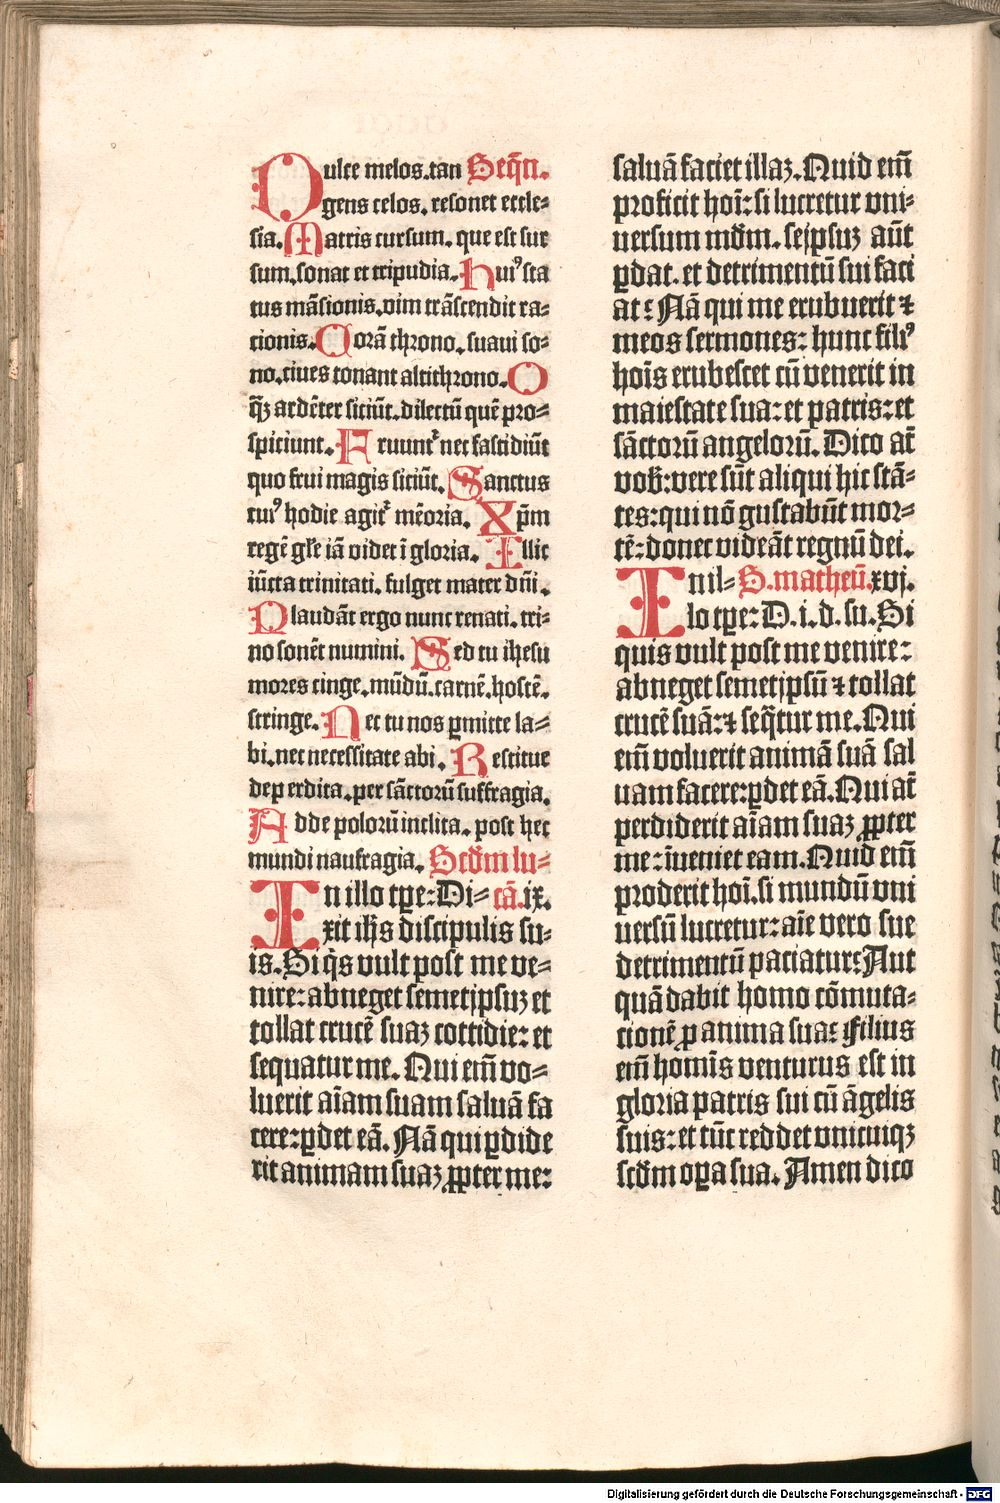 Dulce melos.tan Seqn̄.
gens celos. resonet eccle⸗
sia. Matris cursum. que est sur
sum. sonat et tripudia. Huiꝰ sta
tus mãsionis. vim trãscendit ra⸗
cionis. Corã throno. suaui so⸗
no. ciues tonant altichrono. O
q̃ȝ ardẽter siciũt. dilectũ quẽ pro⸗
spiciunt. Fruunt᷑ nec fastidiũt
quo frui magis siciũt. Sanctus
tuiꝰ hodie agit᷑ mẽoria. Xp̄m
regẽ gl̄e iã videt ĩ gloria. Illic
iũcta trinitati. fulget mater dñi.
Plaudãt ergo nunc renati. tri⸗
no sonẽt numini. Sed tu ihesu
mores cinge. mũdũ. carnẽ. hostẽ.
stringe. Nec tu nos ꝑmitte la⸗
bi. nec necessitate abi. Restitue
deperdita. per sãctorũ suffragia.
Adde polorũ inclita. post hec
mundi naufragia. Scd̄m lu⸗
In illo tp̄e: Di⸗ cã. ix.
xit ih̄s discipulis su⸗
is. Si q̇s vult post me ve⸗
nire: abneget semetip̄suȝ et
tollat crucẽ suaȝ cottidie: et
sequatur me. Qui em̄ vo⸗
luerit aĩam suam saluã fa
cere: ꝑdet eã. Nã qui ꝑdide
rit animam suaȝ ꝓpter me:
saluã faciet illaȝ. Quid em̄
proficit hoĩ: si lucretur vni⸗
uersum mũdm. seip̄suȝ aũt
ꝑdat. et detrimentũ sui faci
at: Nã qui me erubuerit ⁊
meos sermones: hunc filiꝰ
hoĩs erubescet cũ venerit in
maiestate sua: et patris: et
sãctorũ angelorũ. Dico aũt
vob̄: vere sũt aliqui hic stã⸗
tes: qui nõ gustabũt mor⸗
tẽ: donec videãt regnũ dei.
In il⸗ S. matheũ. xvj.
lo tp̄e: D. i. d. su. Si
quis vult post me venire:
abneget semetip̄sũ ⁊ tollat
crucẽ suã: ⁊ seq̃tur me. Qui
em̄ voluerit animã suã sal
uam facere: ꝑdet eã. Qui aũt
perdiderit aĩam suaȝ ꝓpter
me: ĩueniet eam. Quid em̄
proderit hoĩ. si mundũ vni
uersũ lucretur: aĩe vero sue
detrimentũ paciatur: Aut
quã dabit homo cõmuta⸗
cionẽ ꝓ anima sua: Filius
em̄ homĩs venturus est in
gloria patris sui cũ ãgelis
suis: et tũc reddet vnicuiqȝ
scd̄m oꝑa sua. Amen dico
Digitalisierung gefördert durch die Deutsche Forschungsgemeinschaft - DFG